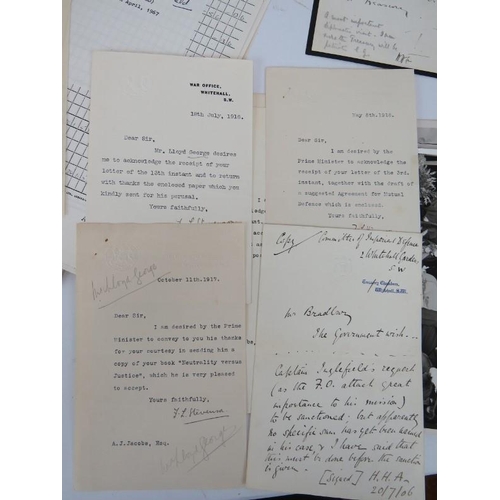 April, 1967
I most important
WAR OFFICE,
WHITEHALL,
S.W.
18th July, 1916.
Dear Sir,
Mr. Lloyd George desires
me to acknowledge the receipt of your
letter of the 12th instant and to return
with thanks the enclosed paper which you
kindly sent for his perusal.
Yours faithfully,
May 8th, 1919.
Dear Sir,
I am desired by the
Prime Minister to acknowledge the
receipt of your letter of the 3rd.
instant, together with the draft of
a suggested Agreement for Mutual
Defence which is enclosed.
Yours faithfully,
Mr Lloyd George
October 11th. 1917.
Dear Sir,
I am desired by the Prime
Minister to convey to you his thanks
for your courtesy in sending him a
copy of your book "Neutrality versus
Justice", which he is very pleased
to accept.
Yours faithfully,
F.L. Stevenson
A.J. Jacobs, Esq.
Mr Lloyd George
Copy
Committee of Imperial Defence
2 Whitehall Gardens
S.W
Mr Bradbury
The Government wish ...
Captain Inglefield's request
(as the F.O. attach great
importance to his mission)
to be sanctioned; but apparently
no specific sum has yet been named
in his case, & I have said that
this must be done before the sanction
is given.
[Signed] H.H.A.
20/7/06